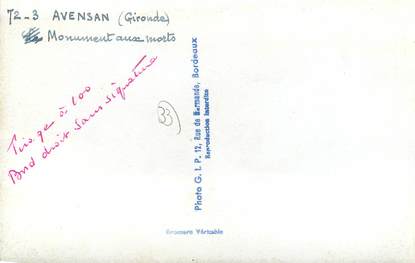 72-3 AVENSAN (Gironde)
Monument aux morts
Tirage à 100
Bord droit sans signature
33
Photo G. I. P. 12, Rue de Marmande, Bordeaux
Reproduction interdite
Bromure Véritable